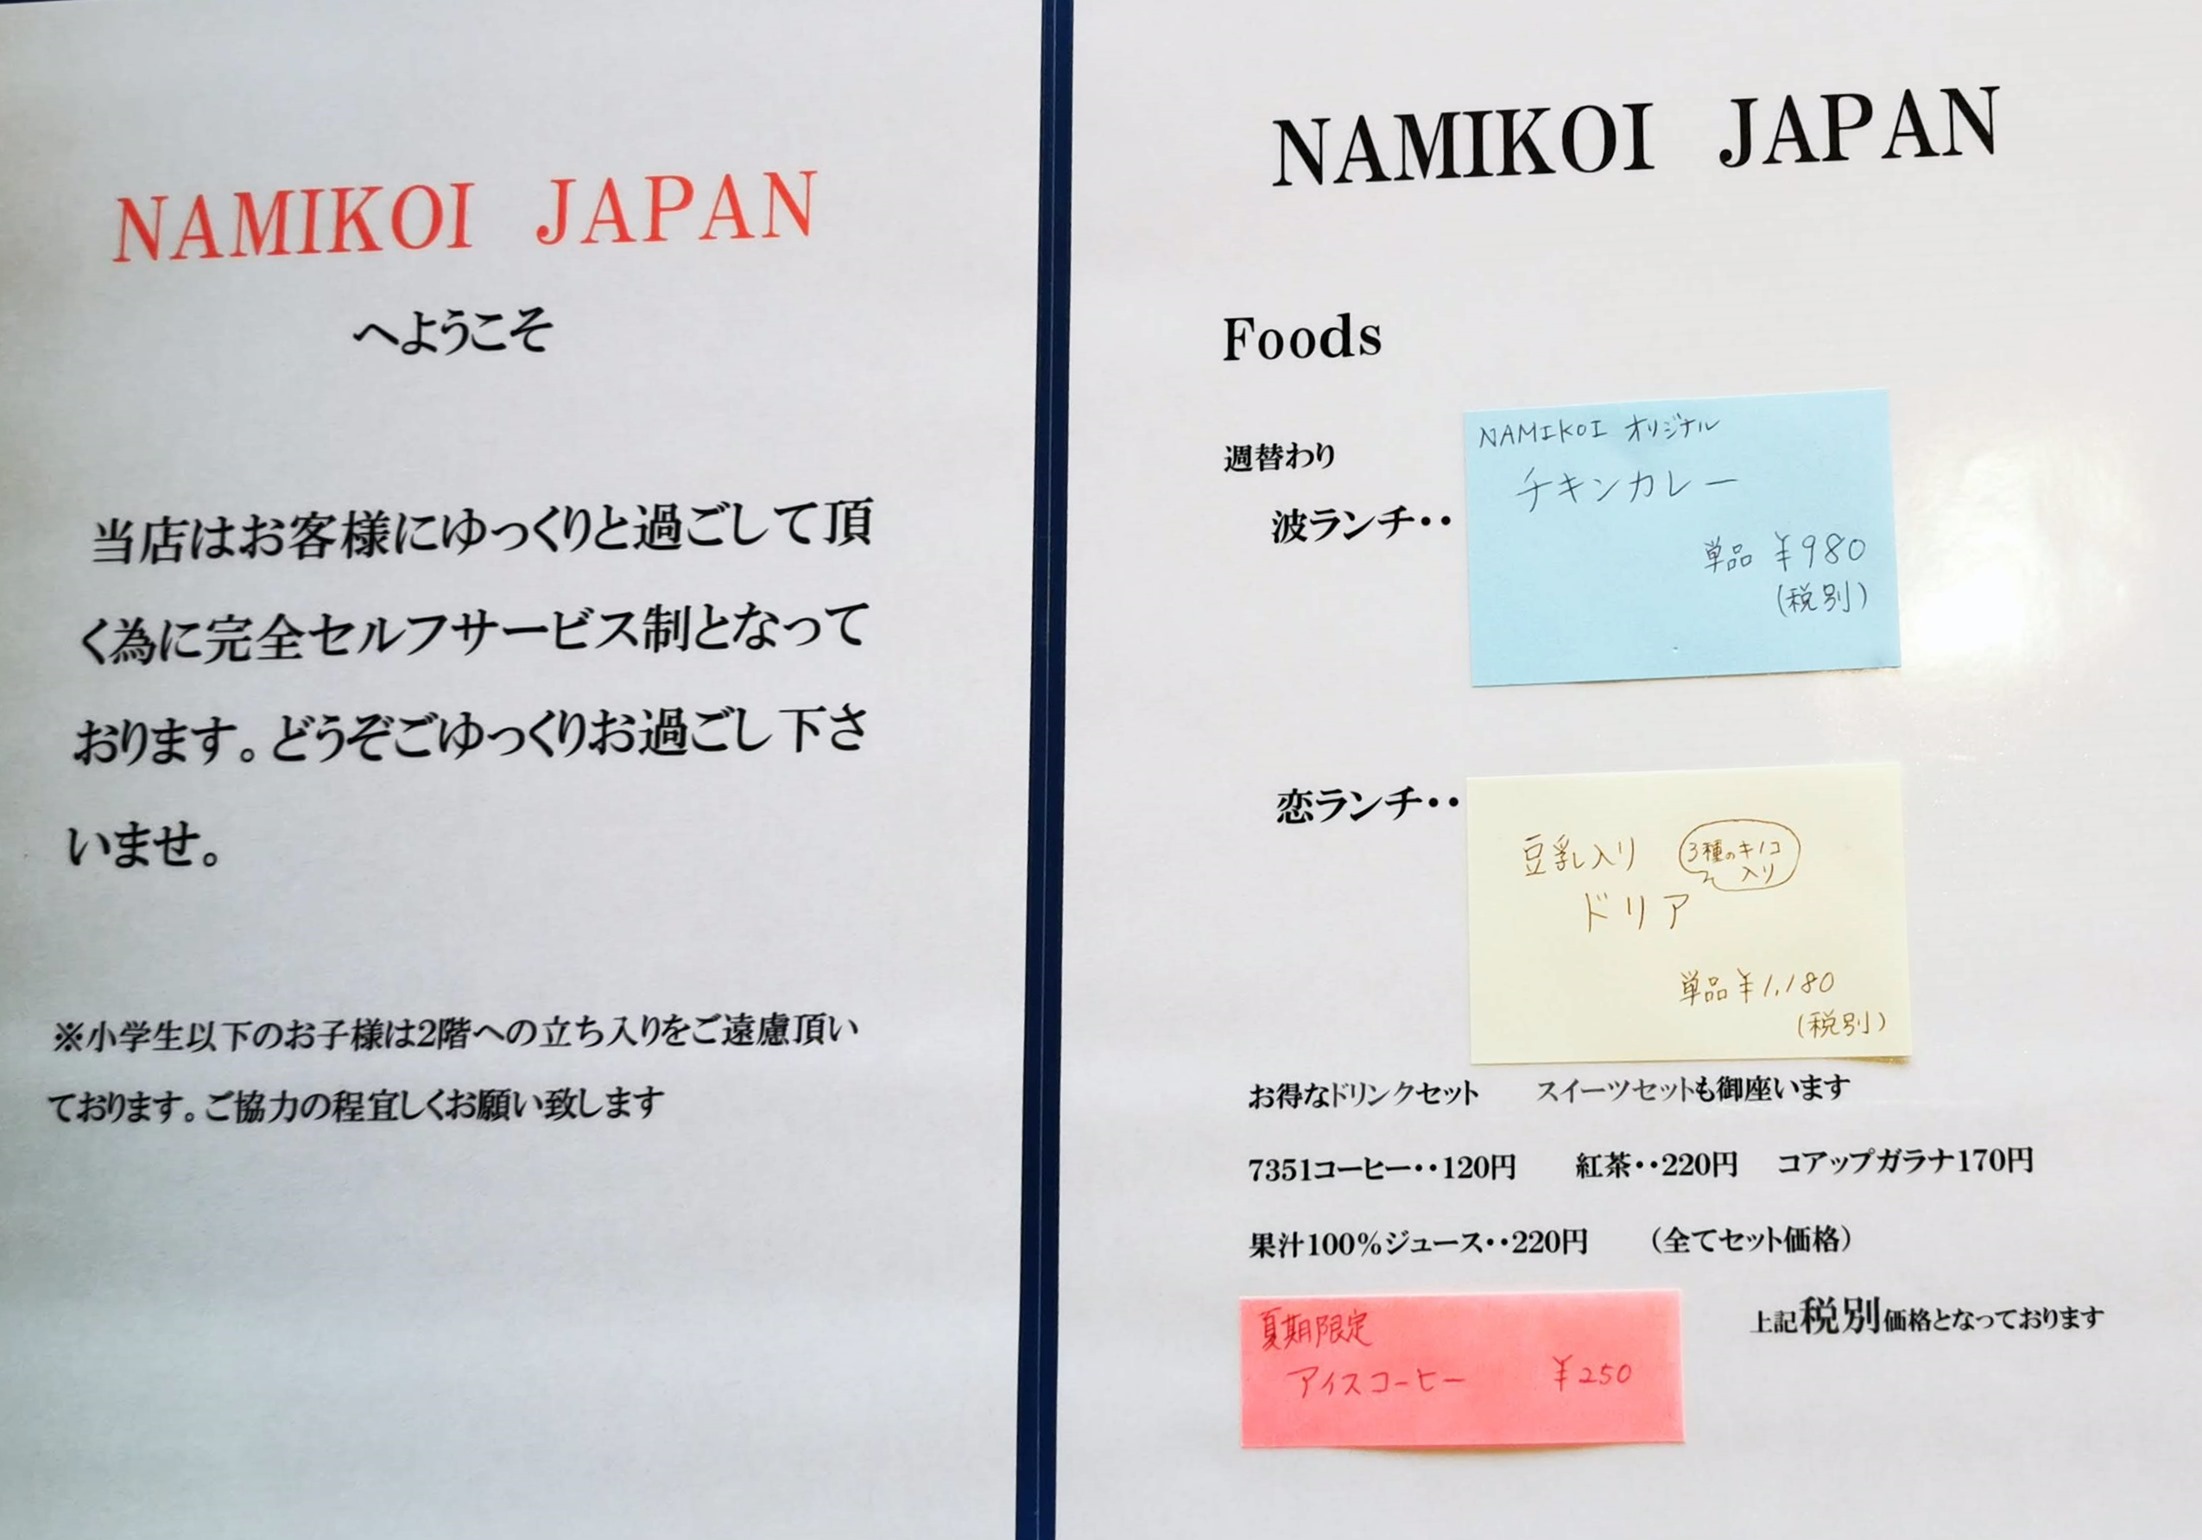 NAMIKOI JAPAN
へようこそ
当店はお客様にゆっくりと過ごして頂
く為に完全セルフサービス制となって
おります。どうぞごゆっくりお過ごし下さ
いませ。
※小学生以下のお子様は2階への立ち入りをご遠慮頂い
ております。ご協力の程宜しくお願い致します
NAMIKOI JAPAN
Foods
週替わり
波ランチ・・
NAMIKOI オリジナル
チキンカレー
単品 ¥980
(税別)
恋ランチ・・
豆乳入り
3種のキノコ
入り
ドリア
単品 ¥1,180
(税別)
お得なドリンクセット スイーツセットも御座います
7351コーヒー・・120円 紅茶・・220円 コアップガラナ170円
果汁100%ジュース・・220円 (全てセット価格)
上記税別価格となっております
夏期限定
アイスコーヒー ¥250